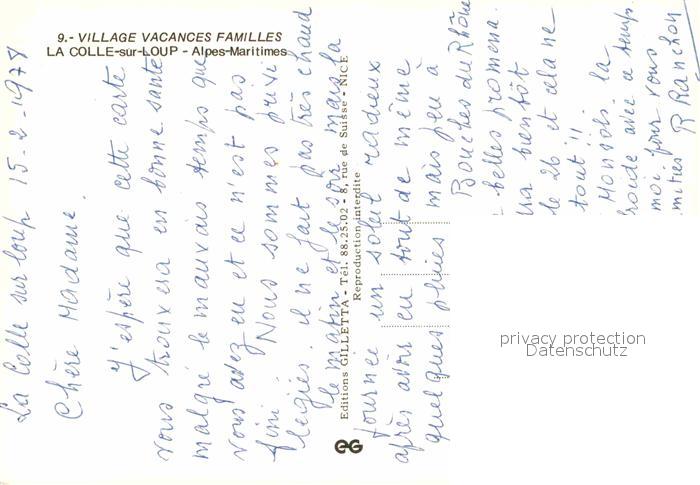 9.- VILLAGE VACANCES FAMILLES
LA COLLE-sur-LOUP - Alpes-Maritimes
La Colle sur loup 15-2-1978
Chère Madame,
J'espère que cette carte
vous trouvera en bonne santé
malgré le mauvais temps que
vous avez eu et ce n'est pas
fini. Nous sommes privi
legiés. il ne fait pas très chaud
le matin et le soir mais la
journée un soleil radieux
après avoir eu tout de même
quelques pluies mais peu à
Bouches du Rhône
belles promena.
va bientôt
le 26 et cela ne
tout !!
la
froide avec ce temp.
moi pour vous
mitiés R Ranchon
Editions GILLETTA - Tél. 88.25.02 - 8, rue de Suisse - NICE
Reproduction interdite
EG
privacy protection
Datenschutz